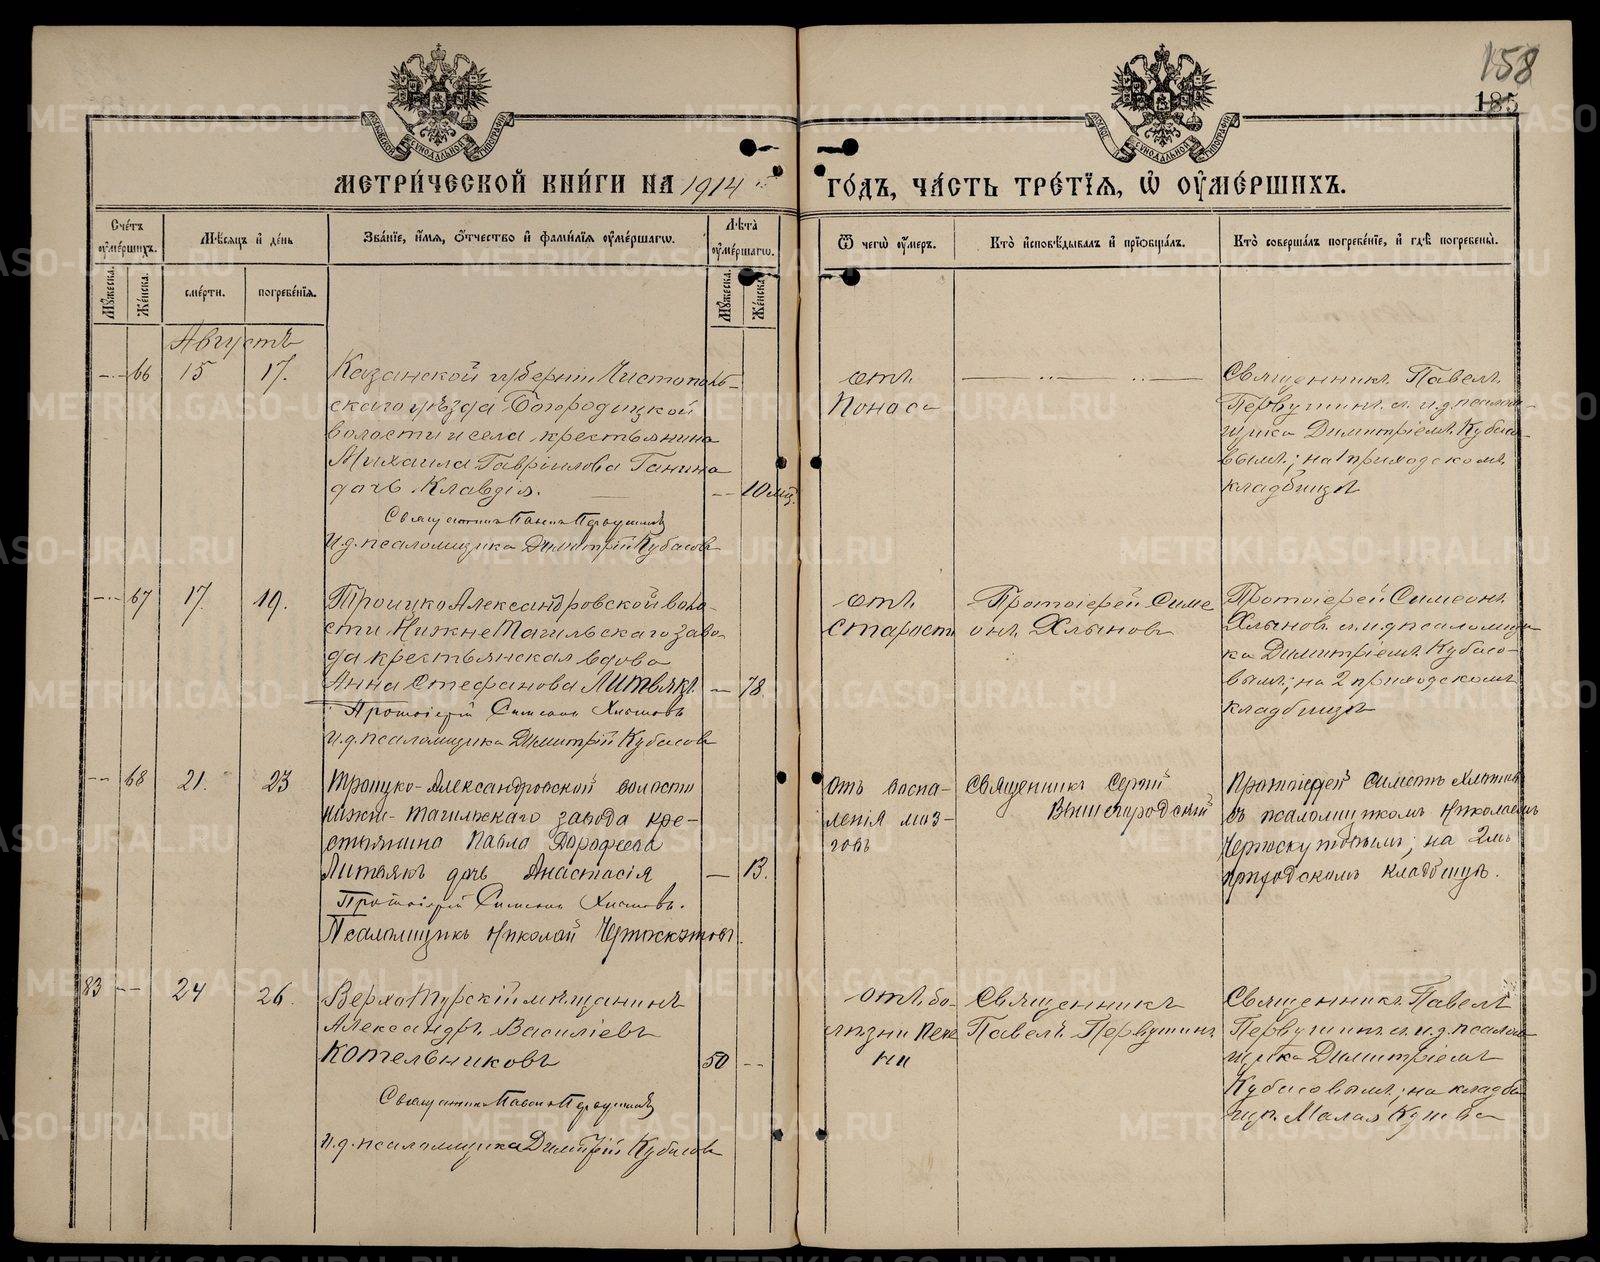 158
185
МОСКОВСКОЙ СѴНОДАЛЬНОЙ ТИПОГРАФІИ
СѴНОДАЛЬНОЙ ТИПОГРАФІИ
МЕТРИ́ЧЕСКОЙ КНИ́ГИ НА 1914
ГО́ДЪ, ЧА́СТЬ ТРЕ́ТІѦ, Ѿ ОУ҆МЕ́РШИХЪ.
Сче́тъ оу҆ме́ршихъ.
Мѣ́сяцъ и҆ де́нь
Зва́нїе, и҆́мя, ѻ҆́тчество и҆ фами́лїя оу҆ме́ршагѡ.
Лѣ́та оу҆ме́ршагѡ.
Ѿ чегѡ̀ оу҆́меръ.
Кто̀ и҆сповѣ́дывалъ и҆ прїѻбща́лъ.
Кто̀ соверша́лъ погребе́нїе, и҆ гдѣ̀ погребены̀.
Му́жеска.
Же́нска.
сме́рти.
погребе́нїя.
Му́жеска.
Же́нска.
Августъ
66 15 17.
Казанской губерніи Чистополь-
скаго уѣзда Богородицкой
волости и села крестьянина
Михаила Гавріилова Ганина
дочь Клавдія. — 10 мц.
Священникъ Павелъ Первушинъ
И.д. псаломщика Димитрій Кубасовъ
отъ
Поноса
Священникъ Павелъ
Первушинъ с. и.д. псалом-
щика Димитріемъ Кубасо-
вымъ; на 1 приходскомъ
кладбищѣ
67 17. 19.
Троицко Александровской воло-
сти Нижне Тагильскаго заво-
да крестьянская вдова
Анна Стефанова Литвякъ. — 78.
Протоіерей Симеонъ Хлыновъ
И.д. псаломщика Димитрій Кубасовъ
отъ
Старости
Протоіерей Симе
онъ Хлыновъ
Протоіерей Симеонъ
Хлыновъ с. и.д псаломщи
ка Димитріемъ Кубасо-
вымъ; на 2 приходскомъ
кладбищѣ
68 21. 23
Троицко-Александровской волости
Нижне-Тагильскаго завода кре-
стьянина Павла Дорофеева
Литвякъ дочь Анастасія — 13.
Протоіерей Симеонъ Хлыновъ.
Псаломщикъ Николай
отъ воспа-
ленія моз-
говъ
Священникъ Сергій
Вышегородскій
Протоіерей Симеонъ Хлыновъ
съ псаломщикомъ Николаемъ
на 2мъ
приходскомъ кладбищѣ.
83 24 26.
Верхотурскій мѣщанинъ
Александръ Василіевъ
Котельниковъ 50
Священникъ Павелъ Первушинъ
И.д. псаломщика Димитрій Кубасовъ
отъ бо-
лѣзни Пече
ни
Священникъ
Павелъ Первушинъ.
Священникъ Павелъ
Первушинъ с. и.д. псалом
щика Димитріемъ
Кубасовымъ; на кладби
щѣ. Малая Кушва
METRIKI.GASO-URAL.RU